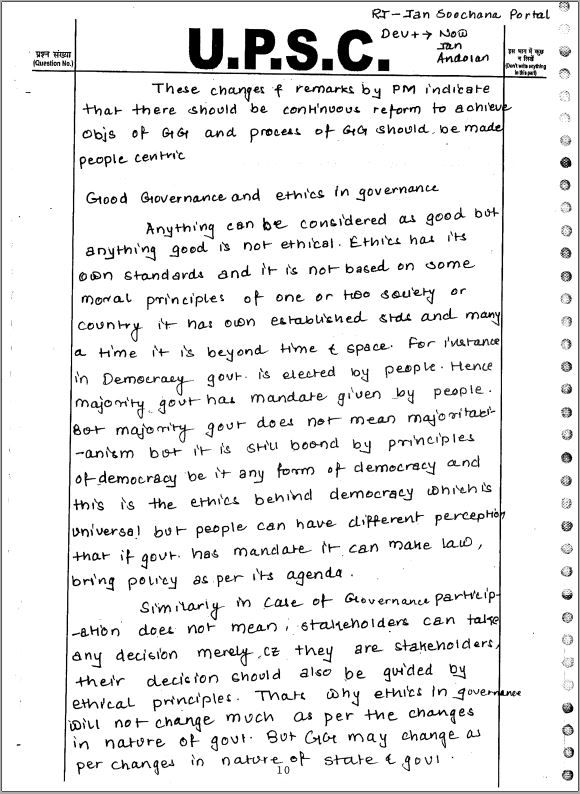 RJ-Jan Soochana Portal
Dev++ → Now
Jan
Andolan
प्रश्न संख्या
(Question No.)
U.P.S.C.
इस भाग में कुछ
न लिखें
(Don't write anything
in this part)
These changes & remarks by PM indicate
that there should be continuous reform to achieve
objs of GG and process of GG should be made
people centric
Good Governance and ethics in governance
Anything can be considered as good but
anything good is not ethical. Ethics has its
own standards and it is not based on some
moral principles of one or two society or
country it has own established stds and many
a time it is beyond time & space. For instance
in Democracy govt. is elected by people. Hence
majority govt has mandate given by people.
But majority govt does not mean majoritari-
-anism but it is still bound by principles
of democracy be it any form of democracy and
this is the ethics behind democracy which is
universal but people can have different perception
that if govt. has mandate it can make law,
bring policy as per its agenda.
Similarly in case of Governance particip-
-ation does not mean, stakeholders can take
any decision merely cz they are stakeholders,
their decision should also be guided by
ethical principles. Thats why ethics in governance
will not change much as per the changes
in nature of govt. But GG may change as
per changes in nature of state & govt.
10